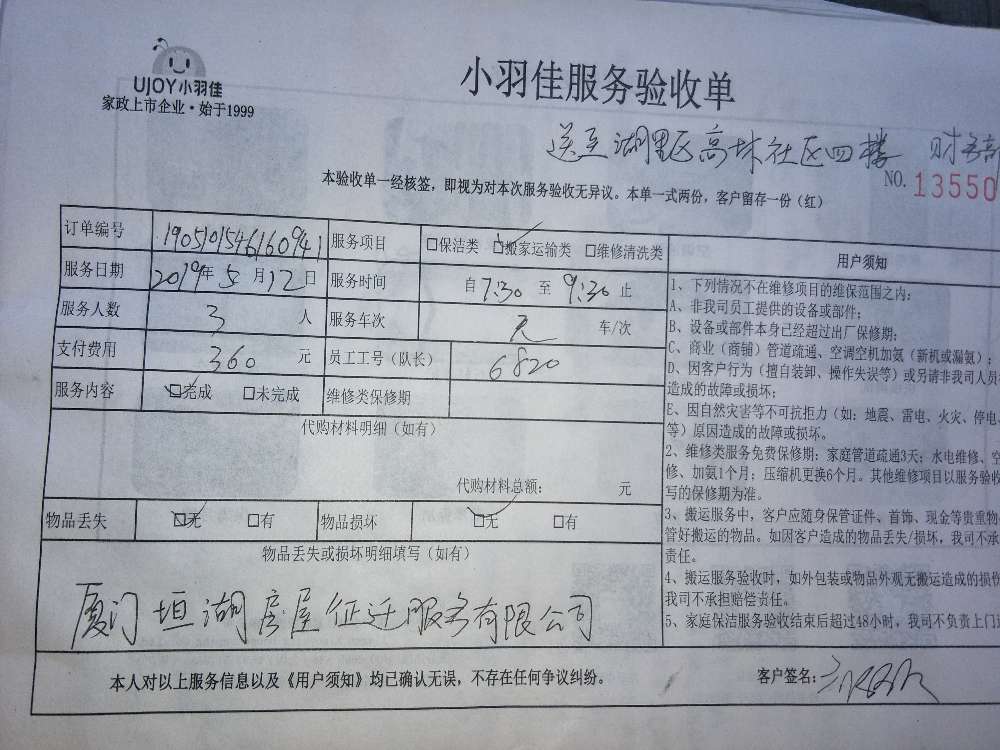 UJOY小羽佳
家政上市企业·始于1999
小羽佳服务验收单
送至湖里区高林社区四楼 财务部
NO. 13550
本验收单一经核签，即视为对本次服务验收无异议。本单一式两份，客户留存一份（红）
订单编号 1905101546160941 服务项目 □保洁类 □搬家运输类 □维修清洗类
服务日期 2019年5月12日 服务时间 自7:30至9:30止
服务人数 3人 服务车次 无 车/次
支付费用 360元 员工工号（队长） 6820
服务内容 □完成 □未完成 维修类保修期
代购材料明细（如有）
代购材料总额： 元
物品丢失 □无 □有 物品损坏 □无 □有
物品丢失或损坏明细填写（如有）
厦门垣湖房屋征迁服务有限公司
用户须知
1、下列情况不在维修项目的维保范围之内：
A、非我司员工提供的设备或部件；
B、设备或部件本身已经超过出厂保修期；
C、商业（商铺）管道疏通、空调空机加氨（新机或漏氨）；
D、因客户行为（擅自装卸、操作失误等）或另请非我司人员
造成的故障或损坏；
E、因自然灾害等不可抗拒力（如：地震、雷电、火灾、停电、
等）原因造成的故障或损坏。
2、维修类服务免费保修期：家庭管道疏通3天；水电维修、空
修、加氨1个月；压缩机更换6个月。其他维修项目以服务验收
写的保修期为准。
3、搬运服务中，客户应随身保管证件、首饰、现金等贵重物
管好搬运的物品。如因客户造成的物品丢失/损坏，我司不承
责任。
4、搬运服务验收时，如外包装或物品外观无搬运造成的损伤
我司不承担赔偿责任。
5、家庭保洁服务验收结束后超过48小时，我司不负责上门
本人对以上服务信息以及《用户须知》均已确认无误，不存在任何争议纠纷。
客户签名：